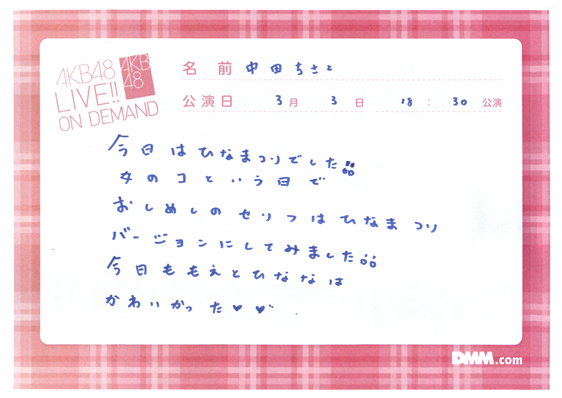 AKB48
LIVE!!
ON DEMAND
AKB
48
名前 中田ちさと
公演日 3月 3日 18:30 公演
今日はひなまつりでした!!
女のコという日で
おしめしのセリフはひなまつり
バージョンにしてみました!!
今日ももえとひななは
かわいかった♥♥
DMM.com